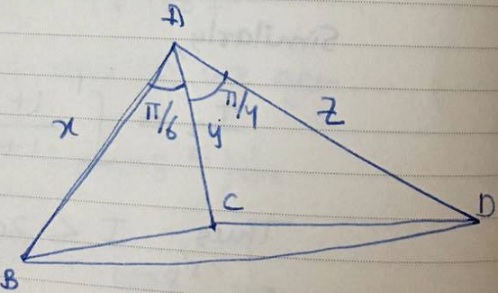 A
x
π/6
y
π/4
z
C
D
B